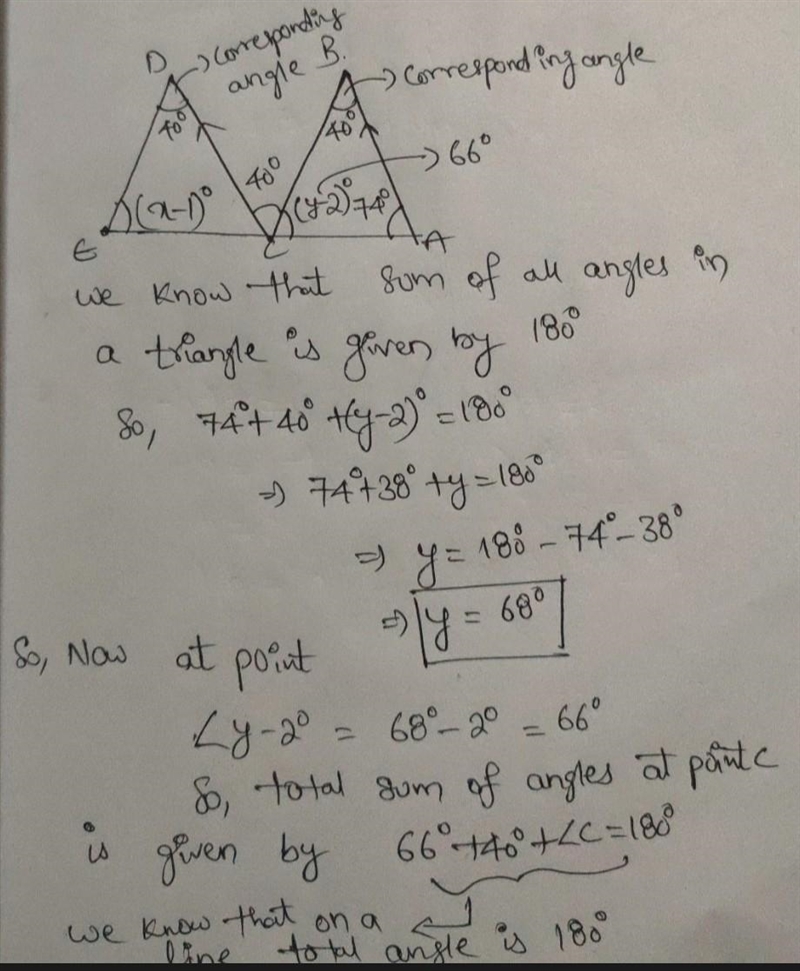 D → corresponding
angle B. → corresponding angle
40° 40° → 66°
40°
(x-1)° (y-2)° 74°
E C A
we know that sum of all angles in
a triangle is given by 180°
So, 74°+40°+(y-2)°=180°
⇒ 74°+38°+y=180°
⇒ y=180°-74°-38°
⇒ y = 68°
So, Now at point
∠y-2° = 68°-2° = 66°
So, total sum of angles at point C
is given by 66°+40°+∠C=180°
we know that on a
line total angle is 180°